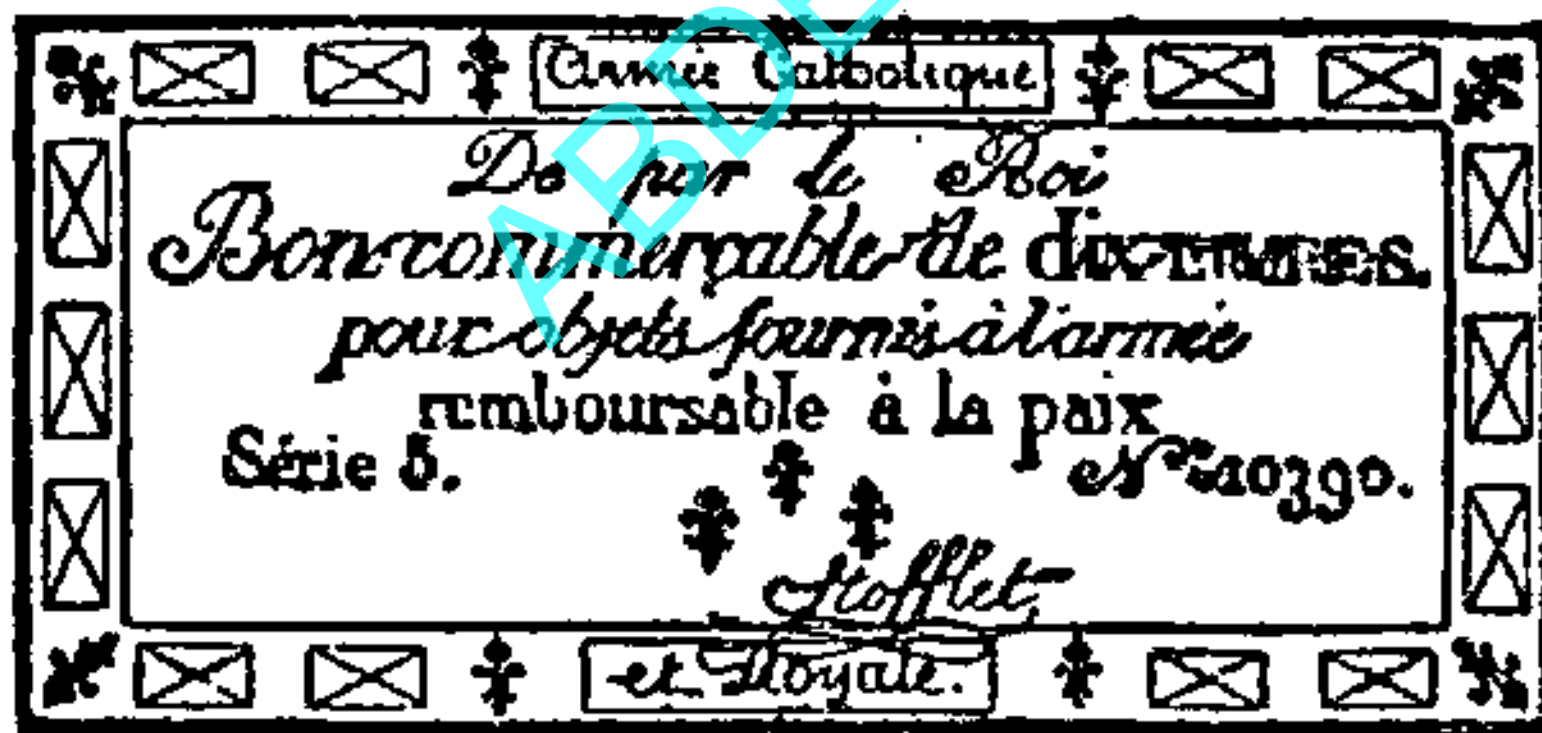 Armée Catholique
De par le Roi
Bon commerçable de dix
pour objets fournis à l'armée
remboursable à la paix
Série 5. Nº. 10390.
Stofflet,
et Royale.
ABDE